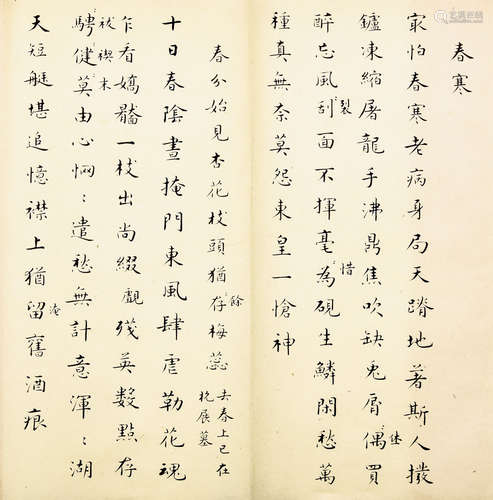 春寒
最怕春寒老病身局天蹐地著斯人撥
鑪凍縮屠龍手沸鼎焦吹缺兎脣偶買
醉忘風刮面不揮毫為硯生鱗閑愁萬
種真無奈莫怨東皇一愴神
製
惜
春分始見杏花枝頭猶存梅蕊
餘
去春上巳在
杭展墓
十日春陰晝掩門東風肆虐勒花魂
乍看嬌靨一枝出尚綴殘英數點存
祓禊未
騁健莫由心惘〻遣愁無計意渾〻湖
天短艇堪追憶襟上猶留舊酒痕
淹